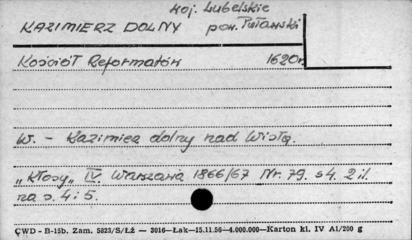 Woj. Lubelskie
KAZIMIERZ DOLNY pow. Puławski
Kościół Reformatów 1620r
W. - Kazimierz dolny nad Wisłą.
„Kłosy" IV. Warszawa 1866/67 Nr. 79. s4. 2 il.
na s. 4 i 5.
ĆWD - B-15b. Zam. 5823/S/ŁŻ — 3016—Łak—15.11.56—4.000.000—Karton kl. IV A1/200 g